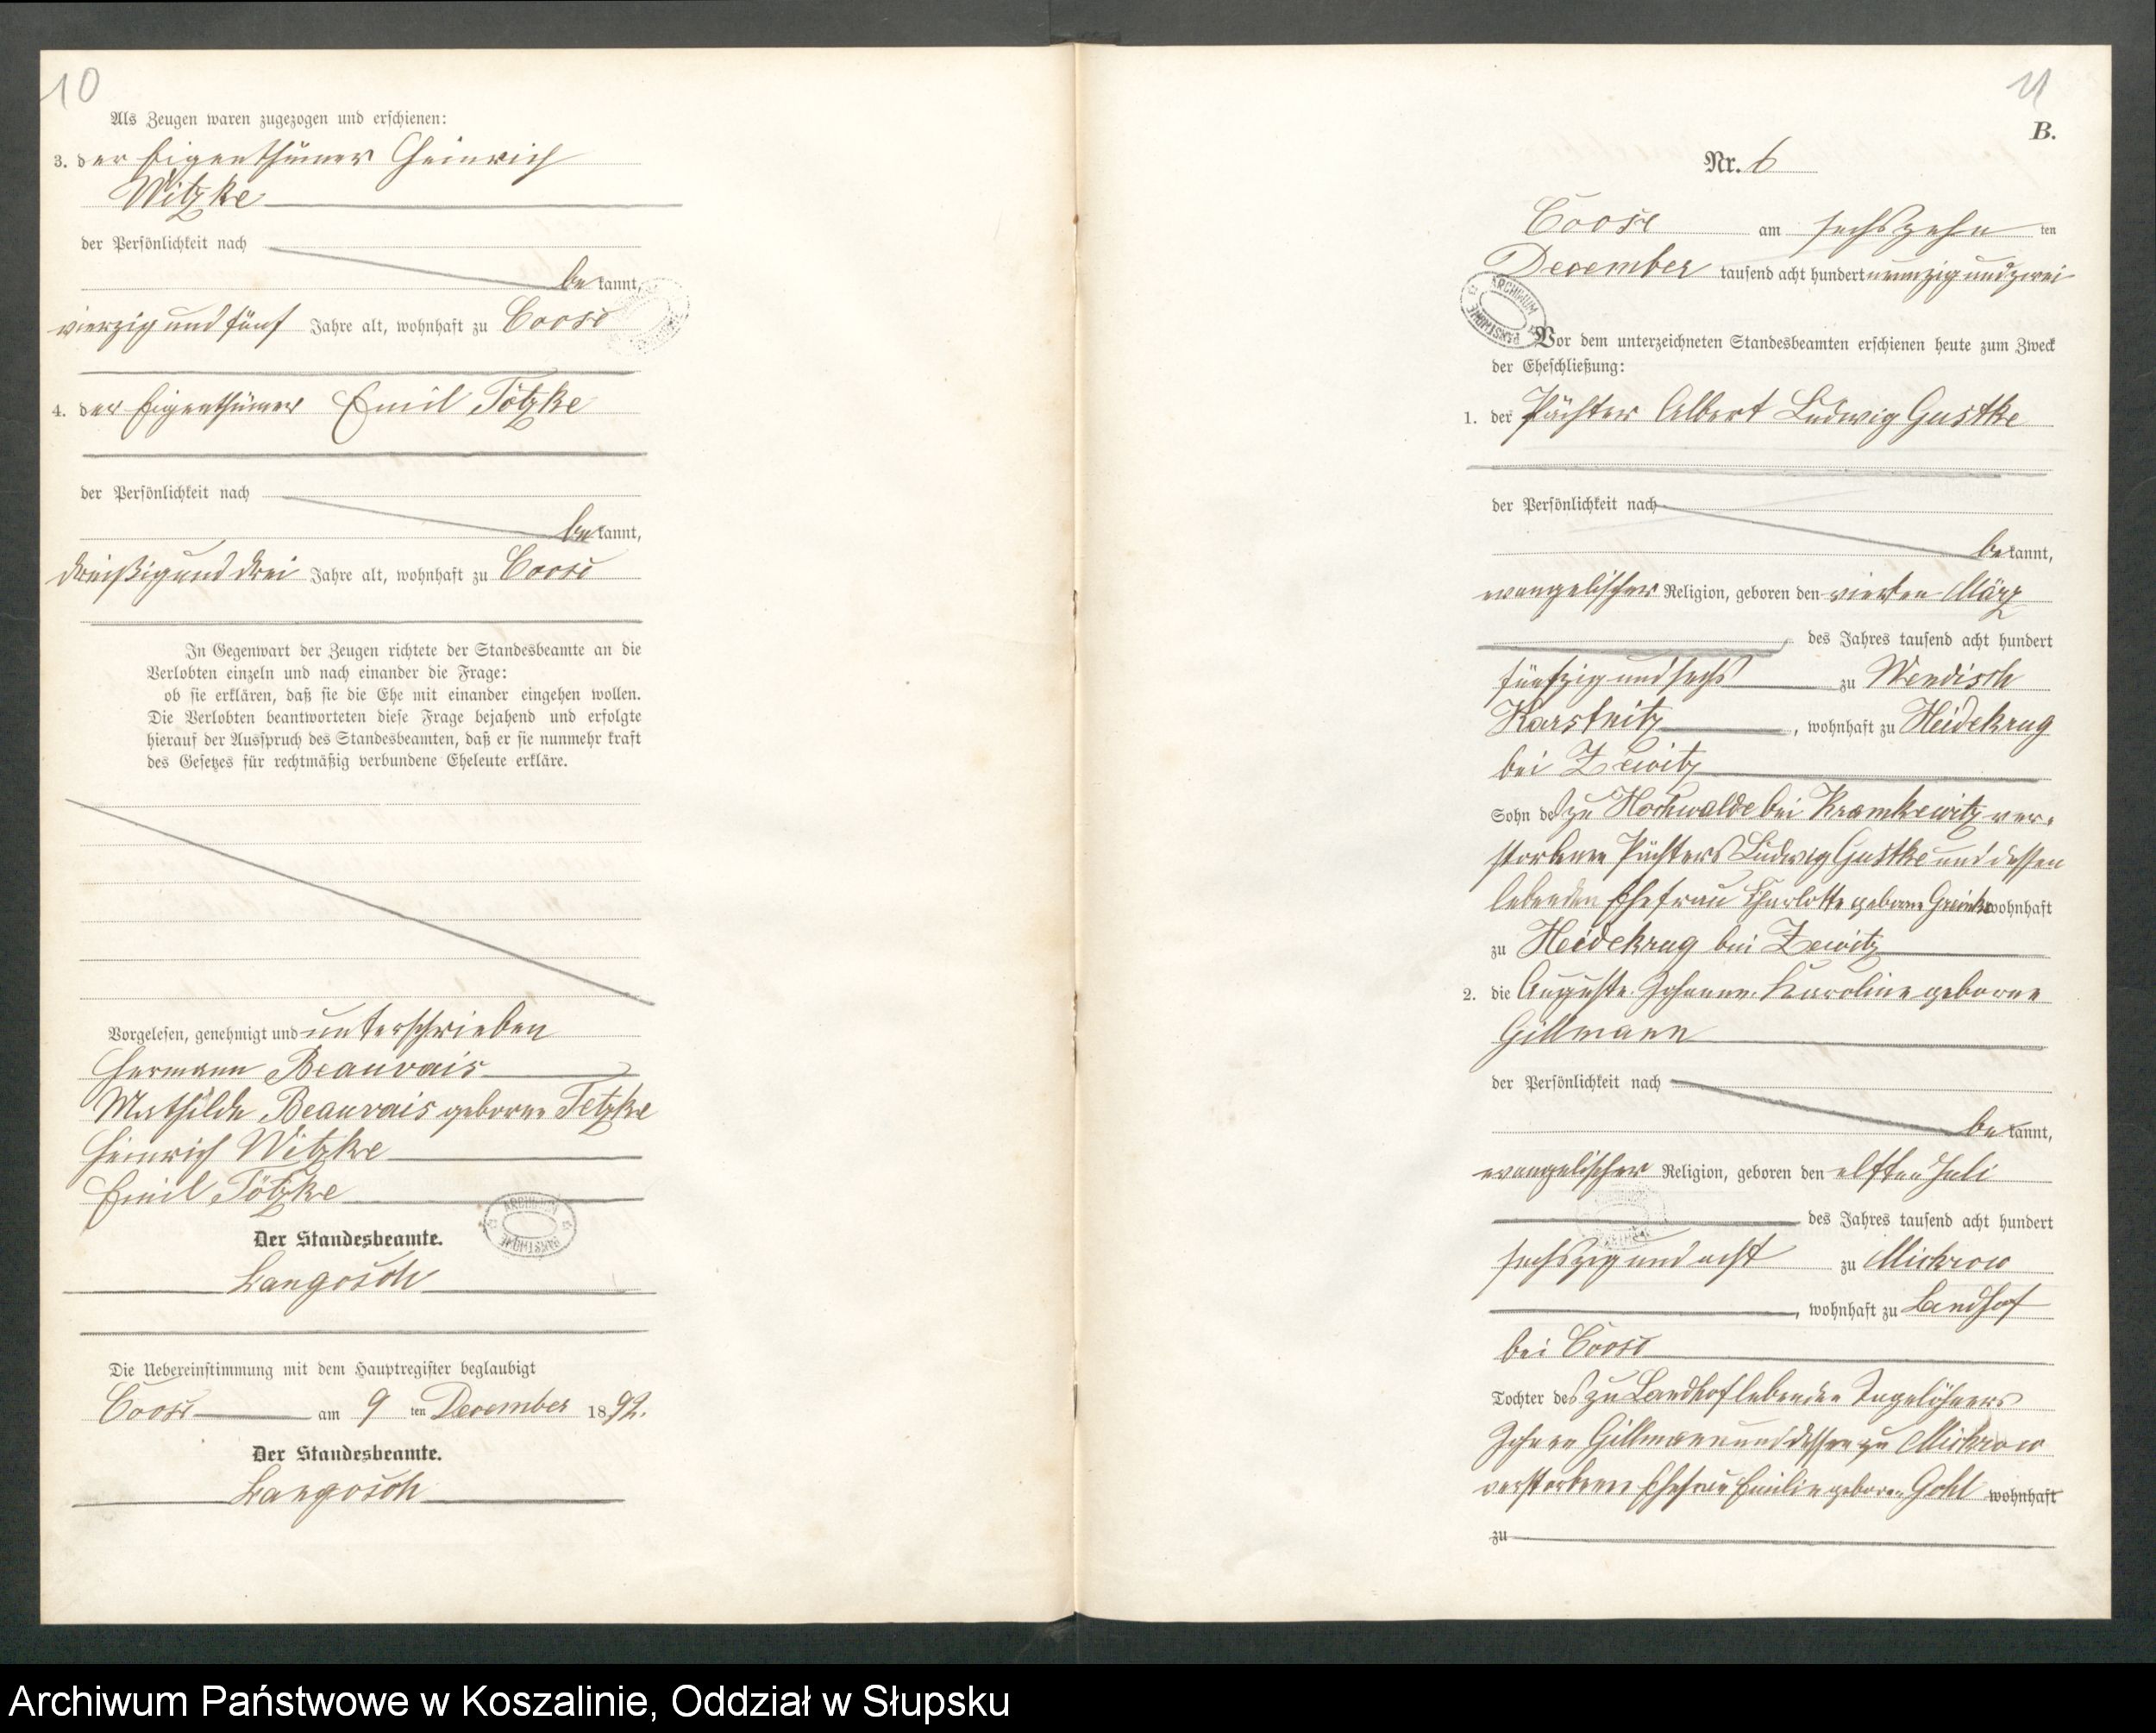 10
Als Zeugen waren zugezogen und erschienen:
3. der Eigenthümer Heinrich
Witzke
der Persönlichkeit nach
be kannt,
vierzig und fünf Jahre alt, wohnhaft zu Coose
4. der Eigenthümer Emil Tötzke
der Persönlichkeit nach
be kannt,
dreißig und drei Jahre alt, wohnhaft zu Coose
In Gegenwart der Zeugen richtete der Standesbeamte an die
Verlobten einzeln und nach einander die Frage:
ob sie erklären, daß sie die Ehe mit einander eingehen wollen.
Die Verlobten beantworteten diese Frage bejahend und erfolgte
hierauf der Ausspruch des Standesbeamten, daß er sie nunmehr kraft
des Gesetzes für rechtmäßig verbundene Eheleute erkläre.
Vorgelesen, genehmigt und unterschrieben
Hermann Beauvais
Mathilde Beauvais geborne Tetzke
Heinrich Witzke
Emil Tötzke
Der Standesbeamte.
Langosch
Die Uebereinstimmung mit dem Hauptregister beglaubigt
Coose am 9 ten December 1892.
Der Standesbeamte.
Langosch
11
B.
Nr. 6
Coose am sechszehn ten
December tausend acht hundert neunzig und zwei
ARCHIWUM PAŃSTWOWE
Vor dem unterzeichneten Standesbeamten erschienen heute zum Zweck
der Eheschließung:
1. der Pächter Albert Ludwig Gustke
der Persönlichkeit nach
be kannt,
evangelischer Religion, geboren den vierten März
des Jahres tausend acht hundert
fünfzig und sechs zu Wendisch
Karstnitz, wohnhaft zu Heidekrug
bei Zewitz
Sohn des zu Hochwalde bei Kramkewitz ver-
storbenen Pächters Ludwig Gustke und dessen
lebenden Ehefrau Charlotte geborne wohnhaft
zu Heidekrug bei Zewitz
2. die Auguste Johanne Karoline geborne
Gillmann
der Persönlichkeit nach
be kannt,
evangelischer Religion, geboren den elften Juli
des Jahres tausend acht hundert
sechszig und acht zu Mickrow
, wohnhaft zu Landhof
bei Coose
Tochter des zu Landhof lebenden Tagelöhners
Johann Gillmann und dessen zu Mickrow
verstorbenen Ehefrau Emilie geboren Gohl wohnhaft
zu
Archiwum Państwowe w Koszalinie, Oddział w Słupsku